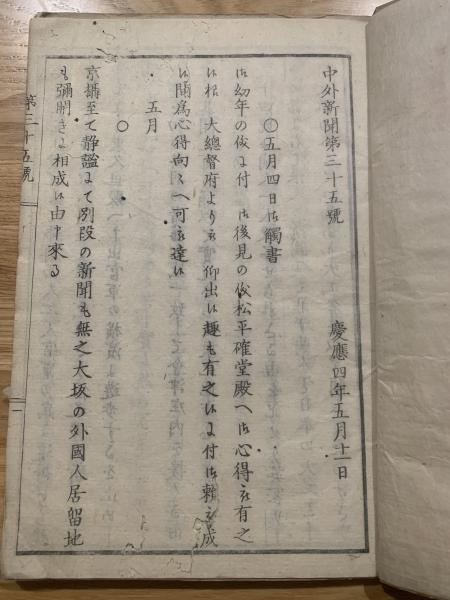 中外新聞第三十五號 慶應四年五月十一日
○五月四日御觸書
御幼年の儀に付 御後見の儀松平確堂殿へ御心得被有之
候根 大總督府より被仰出候趣も有之候に付御頼被成
候間爲心得向々へ可被達候
五月
○
京攝至て靜謐にて別段の新聞も無之大坂の外國人居留地
も彌開きに相成候由申來る
第三十五號
一